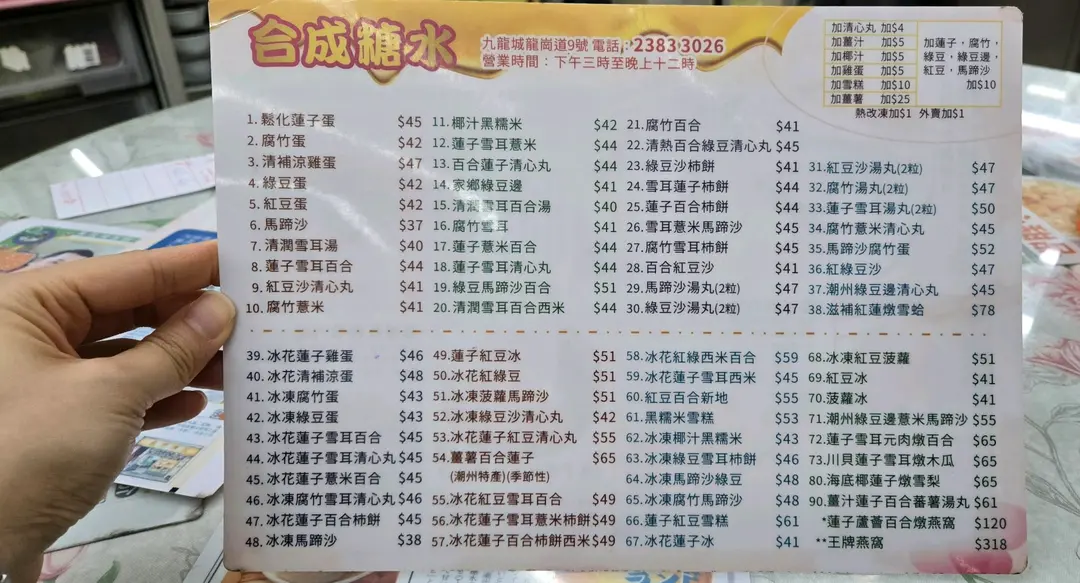 合成糖水
九龍城龍崗道9號 電話：2383 3026
營業時間：下午三時至晚上十二時
加清心丸 加$4
加薑汁 加$5
加椰汁 加$5
加雞蛋 加$5
加雪糕 加$10
加薑薯 加$25
加蓮子，腐竹，
綠豆，綠豆邊，
紅豆，馬蹄沙
加$10
熱改凍加$1 外賣加$1
1. 鬆化蓮子蛋 $45
2. 腐竹蛋 $42
3. 清補涼雞蛋 $47
4. 綠豆蛋 $42
5. 紅豆蛋 $42
6. 馬蹄沙 $37
7. 清潤雪耳湯 $40
8. 蓮子雪耳百合 $44
9. 紅豆沙清心丸 $41
10. 腐竹薏米 $41
11. 椰汁黑糯米 $42
12. 蓮子雪耳薏米 $44
13. 百合蓮子清心丸 $44
14. 家鄉綠豆邊 $41
15. 清潤雪耳百合湯 $40
16. 腐竹雪耳 $41
17. 蓮子薏米百合 $44
18. 蓮子雪耳清心丸 $44
19. 綠豆馬蹄沙百合 $51
20. 清潤雪耳百合西米 $44
21. 腐竹百合 $41
22. 清熱百合綠豆清心丸 $45
23. 綠豆沙柿餅 $41
24. 雪耳蓮子柿餅 $44
25. 蓮子百合柿餅 $44
26. 雪耳薏米馬蹄沙 $45
27. 腐竹雪耳柿餅 $44
28. 百合紅豆沙 $41
29. 馬蹄沙湯丸(2粒) $47
30. 綠豆沙湯丸(2粒) $47
31. 紅豆沙湯丸(2粒) $47
32. 腐竹湯丸(2粒) $47
33. 蓮子雪耳湯丸(2粒) $50
34. 腐竹薏米清心丸 $45
35. 馬蹄沙腐竹蛋 $52
36. 紅綠豆沙 $47
37. 潮州綠豆邊清心丸 $45
38. 滋補紅蓮燉雪蛤 $78
39. 冰花蓮子雞蛋 $46
40. 冰花清補涼蛋 $48
41. 冰凍腐竹蛋 $43
42. 冰凍綠豆蛋 $43
43. 冰花蓮子雪耳百合 $45
44. 冰花蓮子雪耳清心丸 $45
45. 冰花蓮子薏米百合 $45
46. 冰凍腐竹雪耳清心丸 $46
47. 冰花蓮子百合柿餅 $45
48. 冰凍馬蹄沙 $38
49. 蓮子紅豆冰 $51
50. 冰花紅綠豆 $51
51. 冰凍菠蘿馬蹄沙 $51
52. 冰凍綠豆沙清心丸 $42
53. 冰花蓮子紅豆清心丸 $55
54. 薑薯百合蓮子 $65
(潮州特產)(季節性)
55. 冰花紅豆雪耳百合 $49
56. 冰花蓮子雪耳薏米柿餅 $49
57. 冰花蓮子百合柿餅西米 $49
58. 冰花紅綠西米百合 $59
59. 冰花蓮子雪耳西米 $45
60. 紅豆百合新地 $55
61. 黑糯米雪糕 $53
62. 冰凍椰汁黑糯米 $43
63. 冰凍綠豆雪耳柿餅 $46
64. 冰凍馬蹄沙綠豆 $48
65. 冰凍腐竹馬蹄沙 $48
66. 蓮子紅豆雪糕 $61
67. 冰花蓮子冰 $41
68. 冰凍紅豆菠蘿 $51
69. 紅豆冰 $41
70. 菠蘿冰 $41
71. 潮州綠豆邊薏米馬蹄沙 $55
72. 蓮子雪耳元肉燉百合 $65
73. 川貝蓮子雪耳燉木瓜 $65
80. 海底椰蓮子燉雪梨 $65
90. 薑汁蓮子百合蕃薯湯丸 $61
*蓮子蘆薈百合燉燕窩 $120
**王牌燕窩 $318